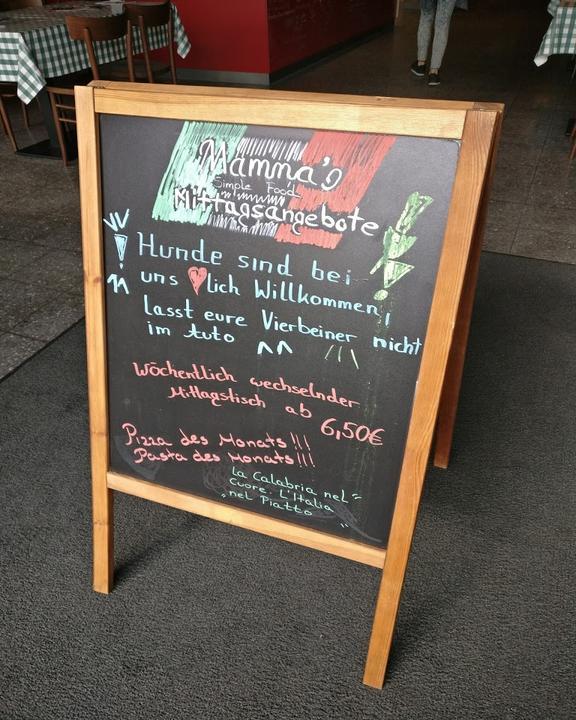 Mamma's
Simple Food
Mittagsangebote
! Hunde sind bei
uns ♥lich Willkommen,
lasst eure Vierbeiner nicht
im Auto
Wöchentlich wechselnder
Mittagstisch ab
6,50€
Pizza des Monats!!!
Pasta des Monats!!!
"La Calabria nel
cuore. L'Italia
nel Piatto"